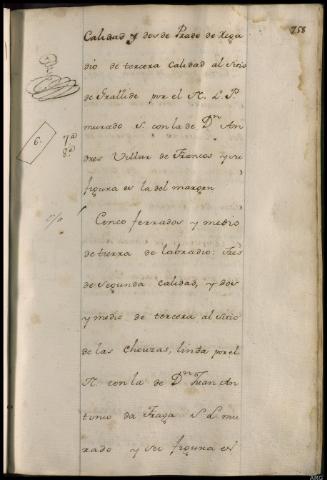 758
Calidad y dos de Prado de Rega
dio de tercera calidad al Sitio
de Frallide por el N. L. P.
murado S. con la de Dn. An
dres Villar de Francos y su
figura es la del margen
6.
7a
8a
Cinco ferrados y medio
de tierra de labradio: Tres
de Segunda calidad, y dos
y medio de tercera al Sitio
de las Chouzas, linda por el
N. con la de Dn. Juan An
tonio da Fraga S. L. mu
rado y su figura es